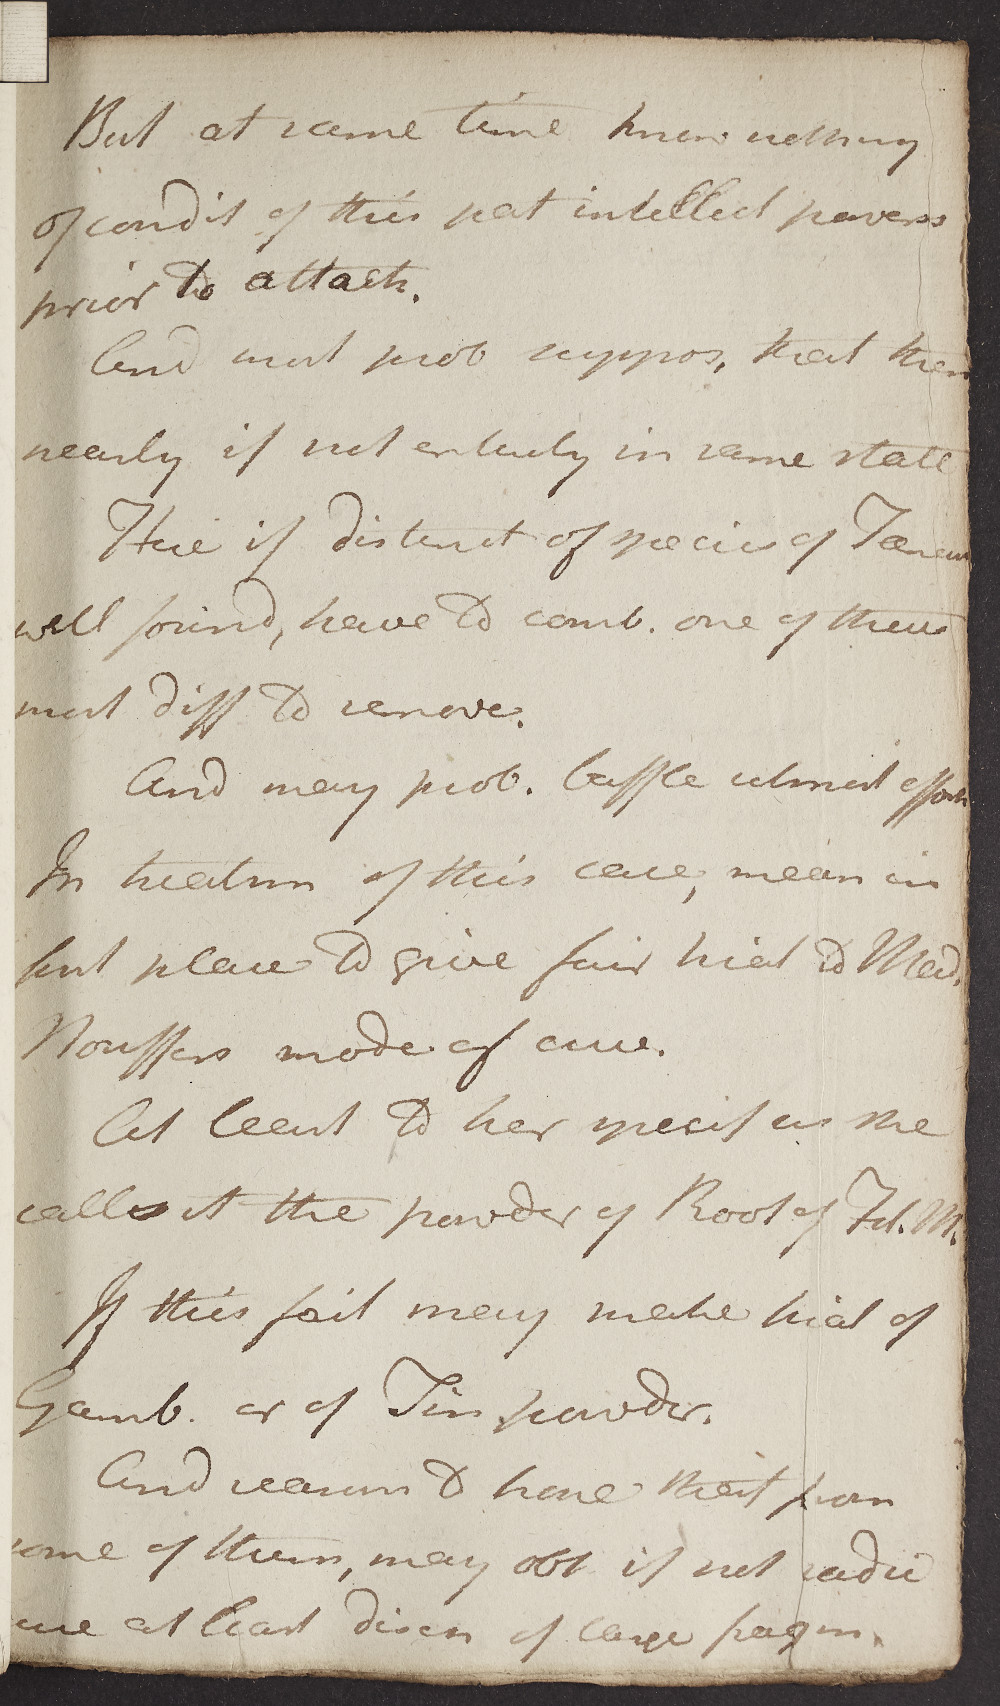 But at same time know nothing
of condit of this pat intellect powers
prior to attack.
And most prob suppos, that then
nearly if not entirely in same state
Here if distinct of species of Taenia
well found, have to comb. one of them
most diff to remove.
And may prob. baffle utmost efforts
In treatmn of this case, mean in
first place to give fair trial to Mad.
Nouffers mode of cure.
At least to her specif as she
calls it the powder of Root of Fil. M.
If this fail may make trial of
Gamb. or of Tin powder.
And reason to hope that from
some of them, may obt if not radic
cure at least discn of large fragm.